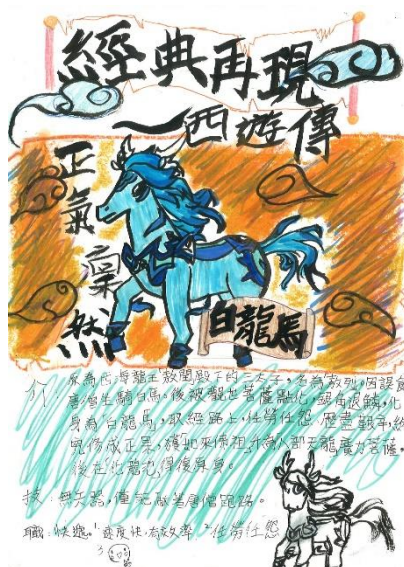 經典再現
一西遊傳
正氣凜然
白龍馬
介：原為西海龍王敖閏殿下的三太子。名為敖烈。因誤食
唐僧坐騎白馬。後被觀世音菩薩點化，鋸角退鱗，化
身為白龍馬，取經路上，任勞任怨，歷盡艱辛，終
究修成正果，獲如來佛祖，升為八部天龍廣力菩薩，
後在化龍池得復原身。
技：無武器，僅能馱著唐僧跑路。
職：快遞。1.速度快有效率 2.任勞任怨
3.